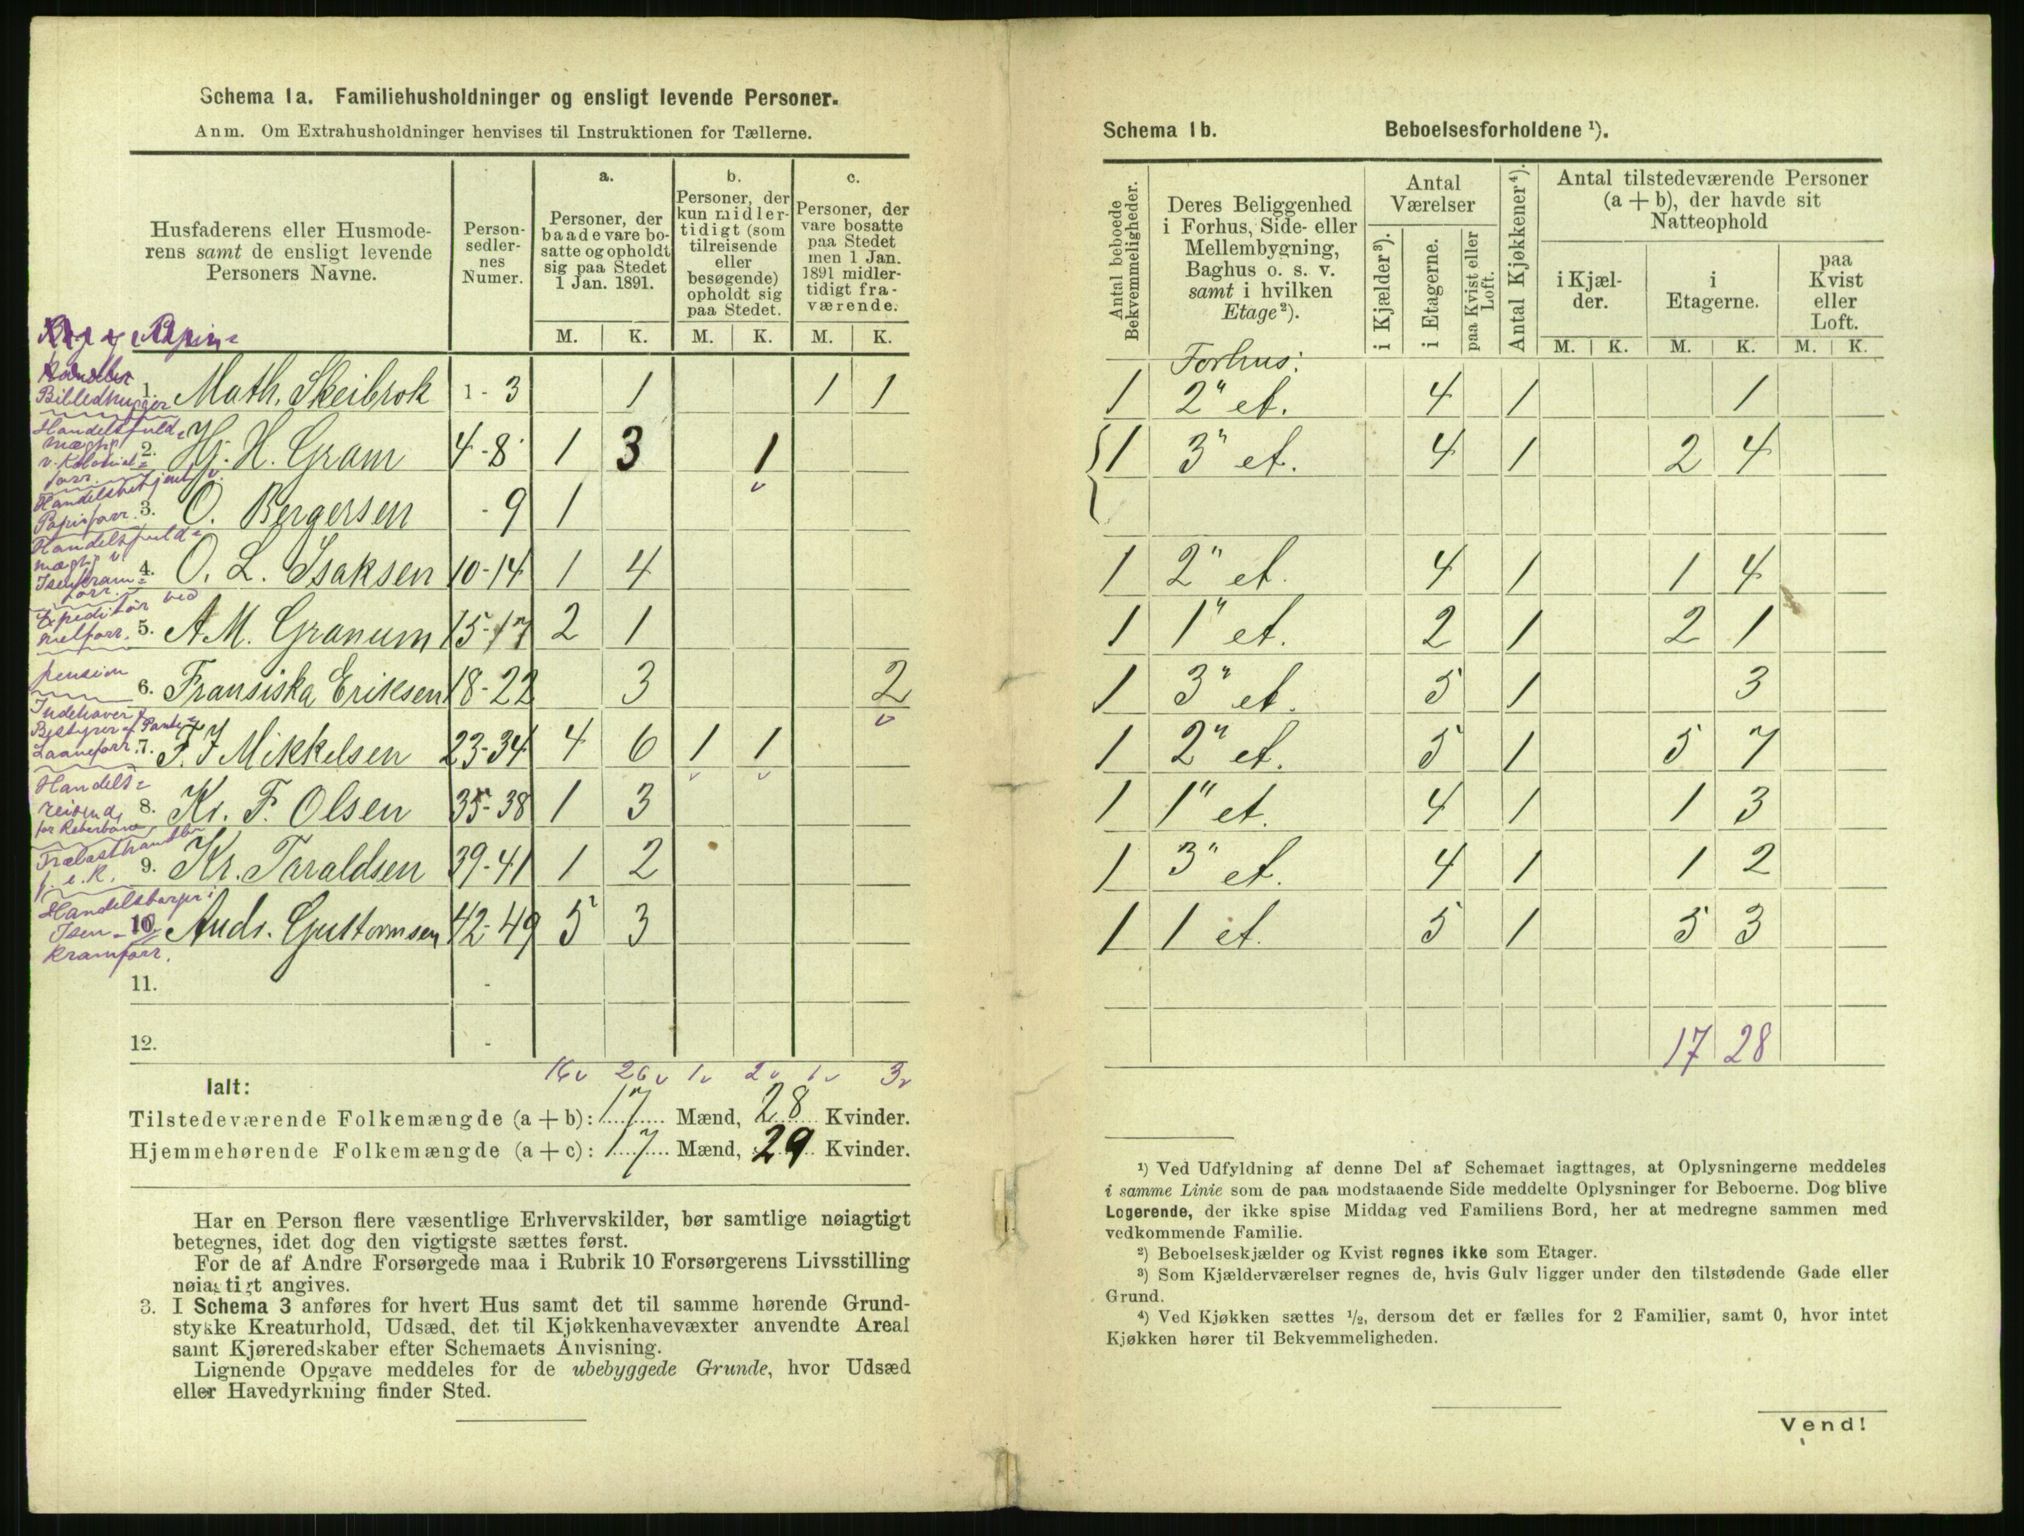 Schema 1a. Familiehusholdninger og ensligt levende Personer.
Anm. Om Extrahusholdninger henvises til Instruktionen for Tællerne.
Husfaderens eller Husmode-
rens samt de ensligt levende
Personers Navne.
Person-
sedler-
nes
Numer.
a.
Personer, der
baade vare bo-
satte og opholdt
sig paa Stedet
1 Jan. 1891.
b.
Personer, der
kun midler-
tidigt (som
tilreisende
eller
besøgende)
opholdt sig
paa Stedet.
c.
Personer, der
vare bosatte
paa Stedet
men 1 Jan.
1891 midler-
tidigt fra-
værende.
M. K. M. K. M. K.
Billedhugger
1. Math. Skeibrok 1-3 1 1 1
Handelsfuld=
mægtig
v. Kolonial=
forr.
2. Hj. H. Gram 4-8 1 3 1
Handelsbetjent v.
Papirforr.
3. O. Bergersen -9 1
Handelsfuld=
mægtig v
Isenkram=
forr.
4. O. L. Isaksen 10-14 1 4
Expeditør ved
melforr.
5. A M. Granum 15-17 2 1
pension
6. Fransiska Eriksen 18-22 3 2
Indehaver
Bestyrer af Pante=
Laaneforr.
7. F. J Mikkelsen 23-34 4 6 1 1
Handels=
reisend,
for Reberbane
8. Kr. F. Olsen 35-38 1 3
Trælasthandler
f. e. R.
9. Kr. Taraldsen 39-41 1 2
Handelsborger i
Isen-
kramforr.
10 Ands. Gustormsen 42-49 5 3
11. -
12. -
16 26 1 2 1 3
Ialt:
Tilstedeværende Folkemængde (a + b): 17 Mænd, 28 Kvinder.
Hjemmehørende Folkemængde (a + c): 17 Mænd, 29 Kvinder.
Har en Person flere væsentlige Erhvervskilder, bør samtlige nøiagtigt
betegnes, idet dog den vigtigste sættes først.
For de af Andre Forsørgede maa i Rubrik 10 Forsørgerens Livsstilling
nøiagtigt angives.
3. I Schema 3 anføres for hvert Hus samt det til samme hørende Grund-
stykke Kreaturhold, Udsæd, det til Kjøkkenhavevæxter anvendte Areal
samt Kjøreredskaber efter Schemaets Anvisning.
Lignende Opgave meddeles for de ubebyggede Grunde, hvor Udsæd
eller Havedyrkning finder Sted.
Schema 1b. Beboelsesforholdene ¹).
Antal beboede
Bekvemmeligheder.
Deres Beliggenhed
i Forhus, Side- eller
Mellembygning,
Baghus o. s. v.
samt i hvilken
Etage²).
Antal
Værelser
i Kjælder³).
i Etagerne.
paa Kvist eller
Loft.
Antal Kjøkkener⁴).
Antal tilstedeværende Personer
(a + b), der havde sit
Natteophold
i Kjæl-
der.
i
Etagerne.
paa
Kvist
eller
Loft.
M. K. M. K. M. K.
Forhus:
1 2" et. 4 1 1
1 3" et. 4 1 2 4
1 2" et. 4 1 1 4
1 1" et. 2 1 2 1
1 3" et. 5 1 3
1 2" et. 5 1 5 7
1 1" et. 4 1 1 3
1 3" et. 4 1 1 2
1 1 et. 5 1 5 3
17 28
¹) Ved Udfyldning af denne Del af Schemaet iagttages, at Oplysningerne meddeles
i samme Linie som de paa modstaaende Side meddelte Oplysninger for Beboerne. Dog blive
Logerende, der ikke spise Middag ved Familiens Bord, her at medregne sammen med
vedkommende Familie.
²) Beboelseskjælder og Kvist regnes ikke som Etager.
³) Som Kjælderværelser regnes de, hvis Gulv ligger under den tilstødende Gade eller
Grund.
⁴) Ved Kjøkken sættes ½, dersom det er fælles for 2 Familier, samt 0, hvor intet
Kjøkken hører til Bekvemmeligheden.
Vend!